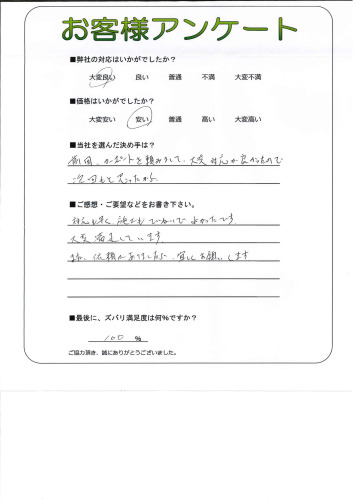 お客様アンケート
■弊社の対応はいかがでしたか？
大変良い 良い 普通 不満 大変不満
■価格はいかがでしたか？
大変安い 安い 普通 高い 大変高い
■当社を選んだ決め手は？
前回、カーポートを頼みうして、大変 対応が良かったので
次回もと思ったから
■ご感想・ご要望などをお書き下さい。
対応も早く 施工も ていねいで よかったです
大変満足しています
また、依頼がありましたら 宜しくお願いします
■最後に、ズバリ満足度は何％ですか？
100 %
ご協力頂き、誠にありがとうございました。